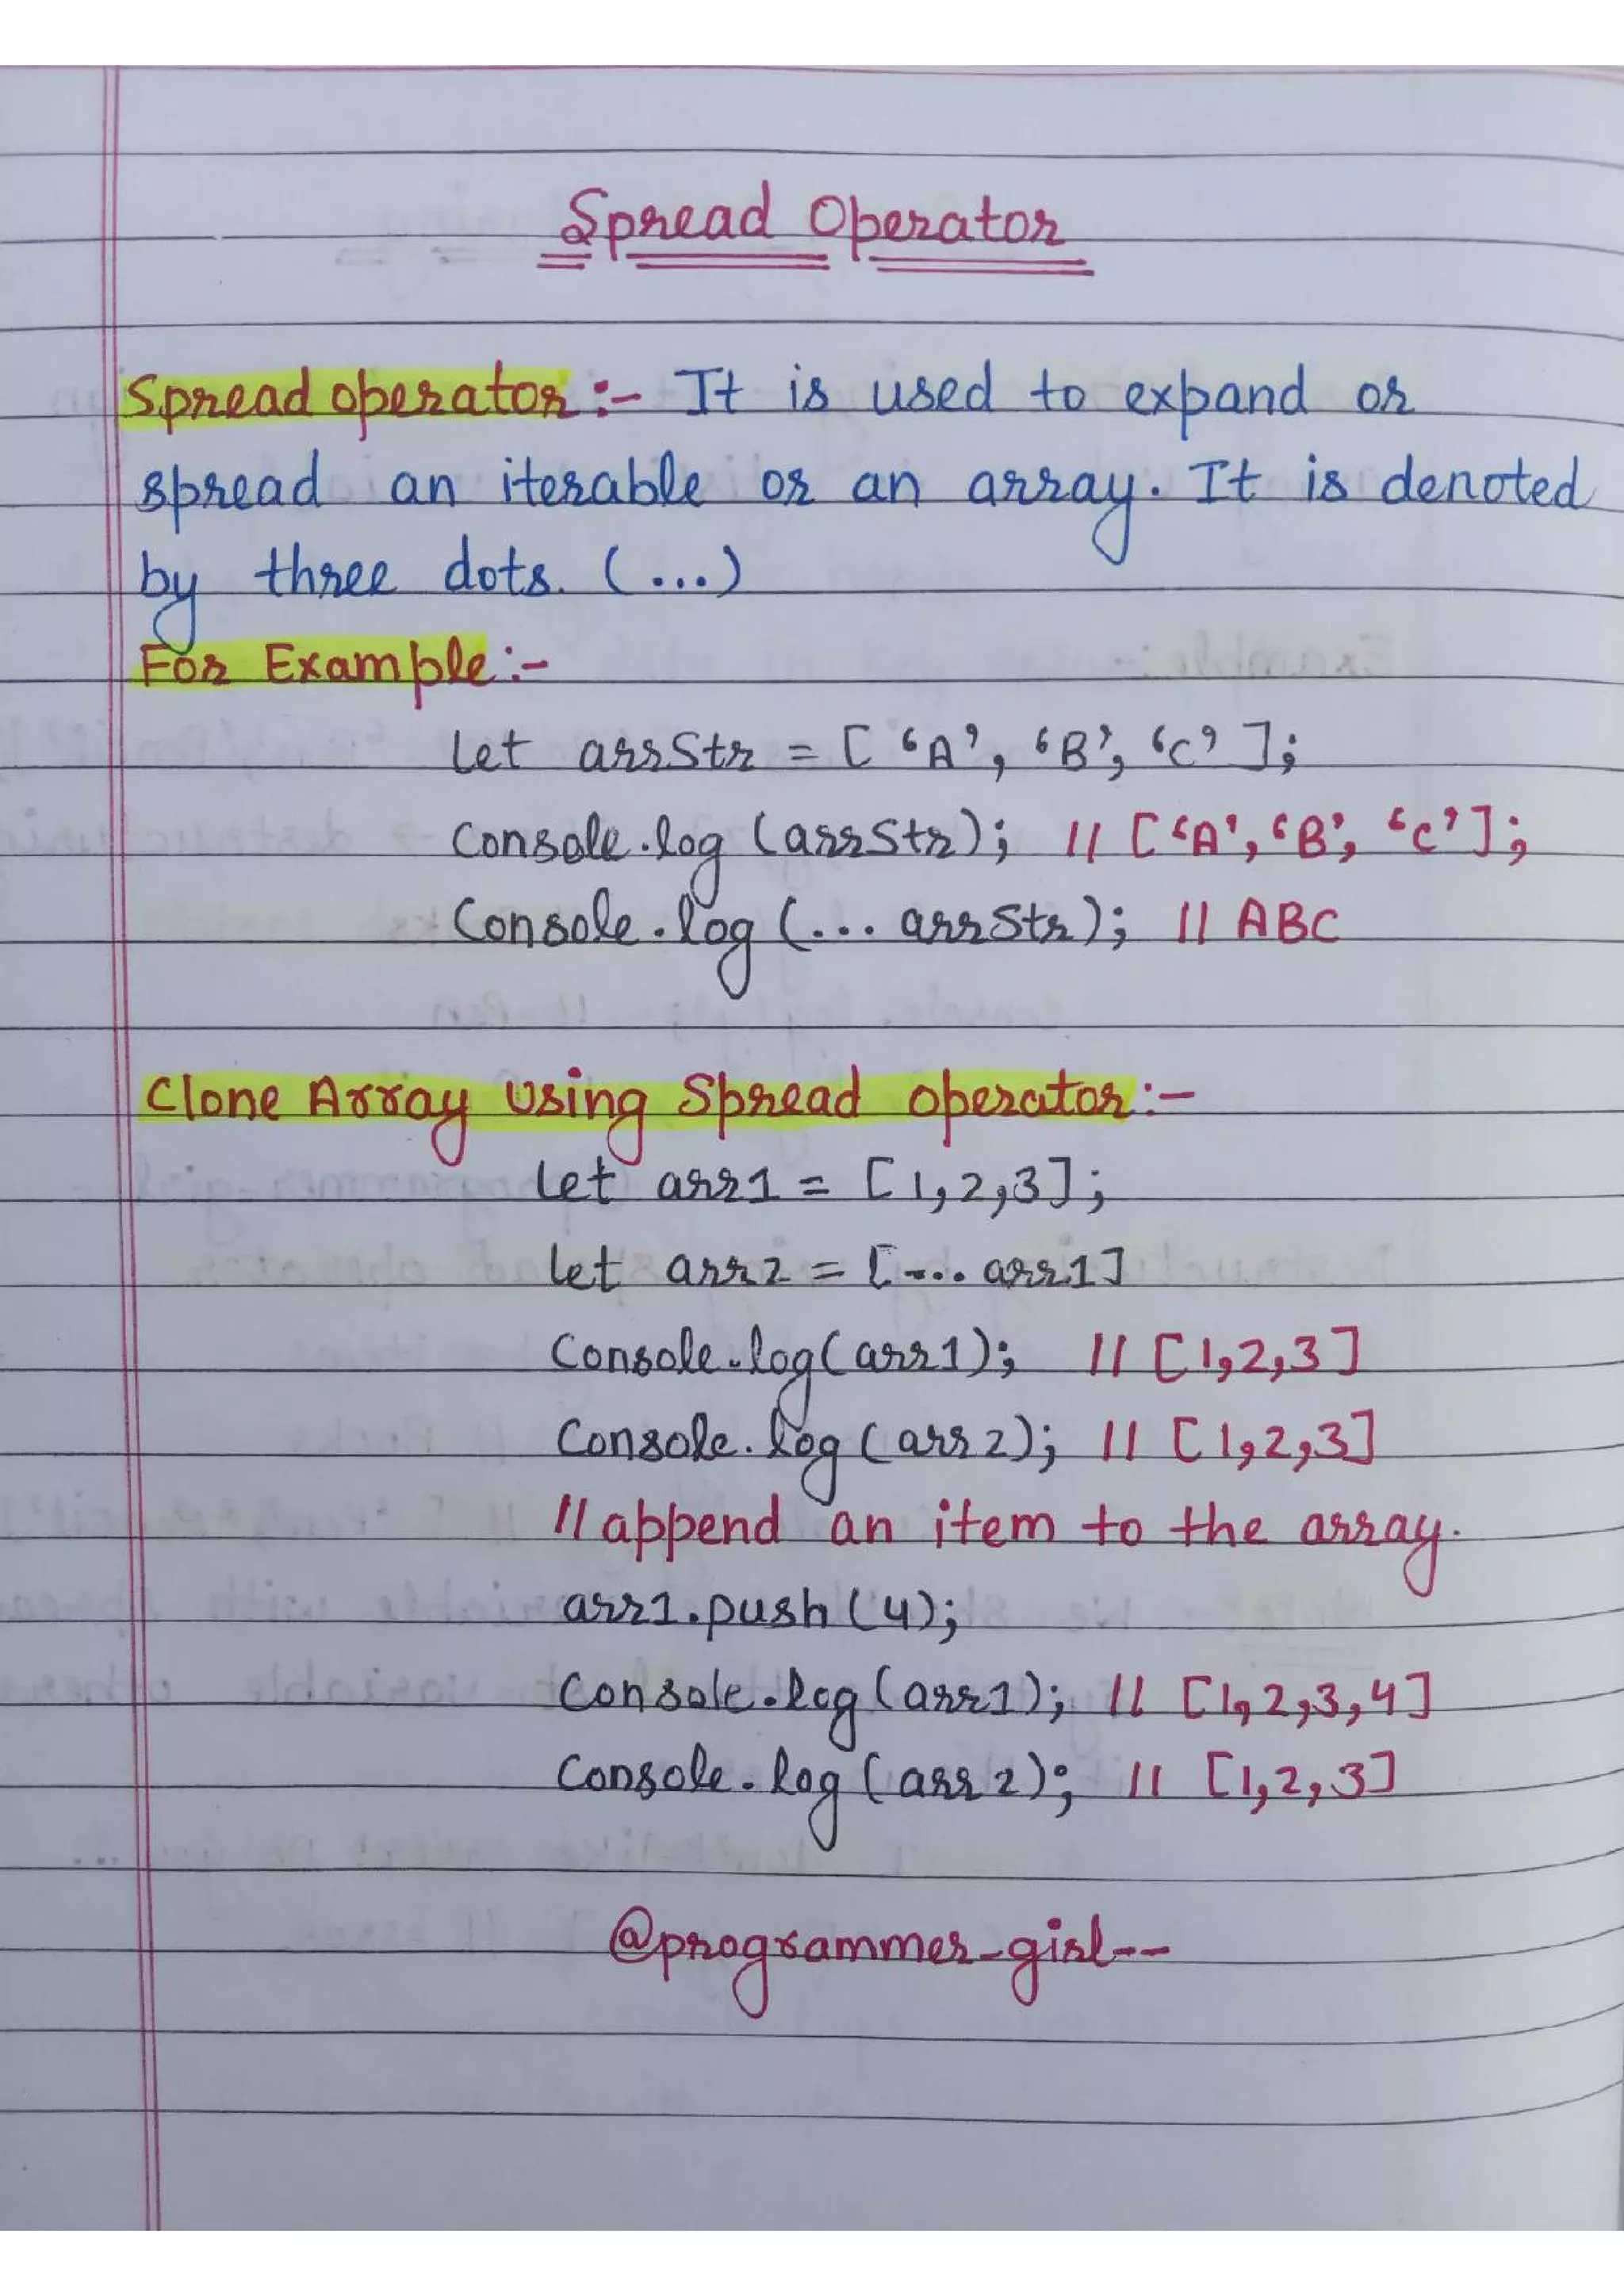 Spread Operator
Spread operator :- It is used to expand or
spread an iterable or an array. It is denoted
by three dots. (...)
For Example :-
let arrStr = [ ‘A’, ‘B’, ‘C’ ];
Console.log (arrStr); // [‘A’, ‘B’, ‘C’];
Console.log (... arrStr); // ABC
Clone Array Using Spread operator :-
let arr1 = [1,2,3];
let arr2 = [... arr1]
Console.log(arr1); // [1,2,3]
Console.log (arr2); // [1,2,3]
// append an item to the array.
arr1.push(4);
Console.log(arr1); // [1,2,3,4]
Console.log (arr2); // [1,2,3]
@programmer_girl--